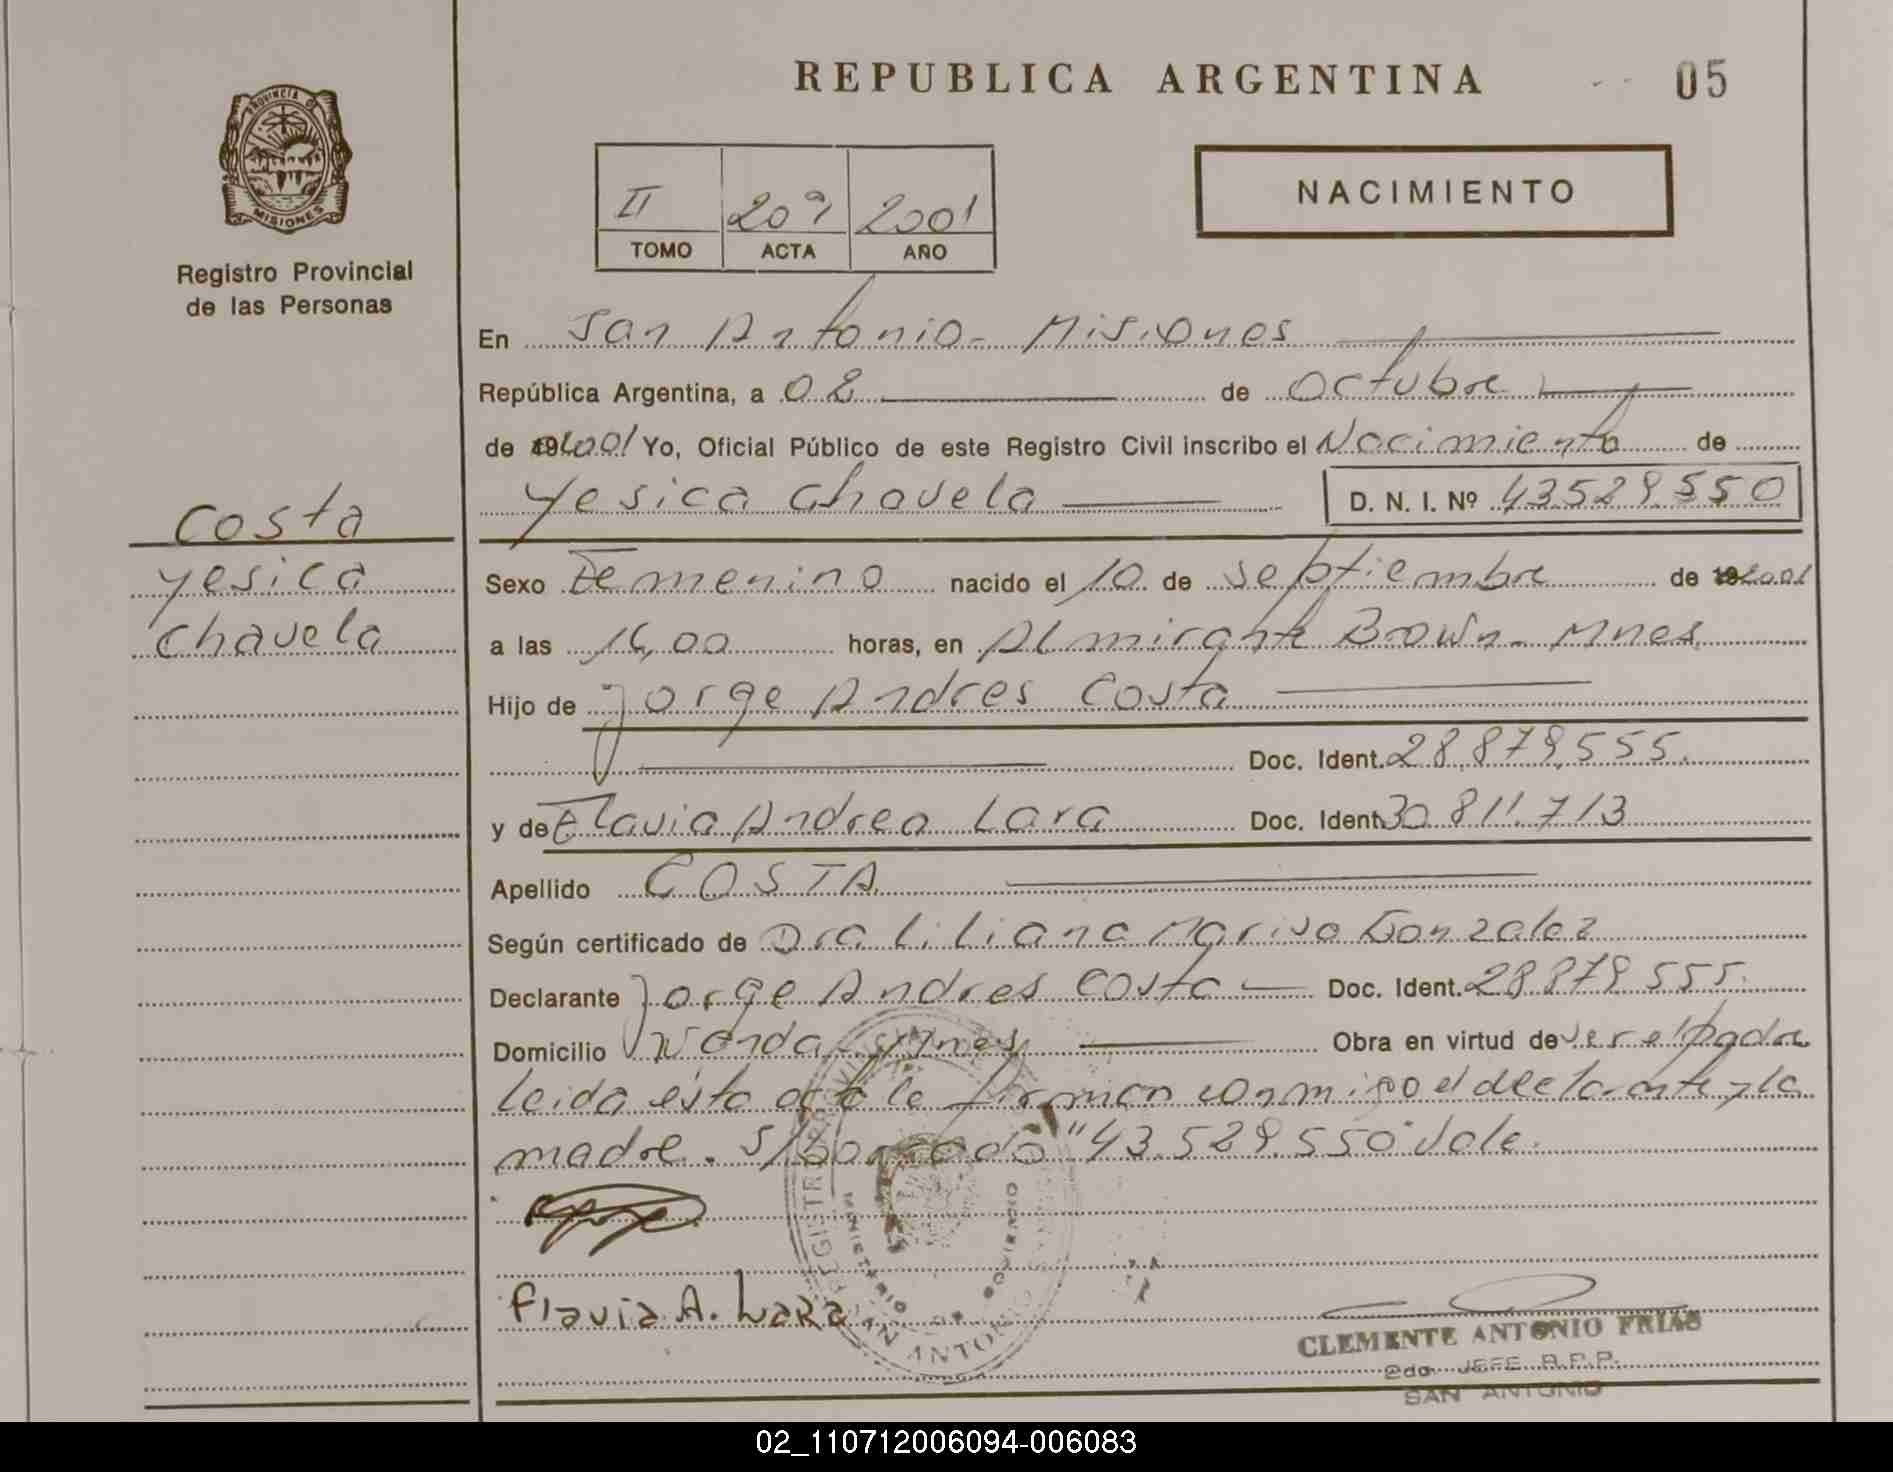 REPUBLICA ARGENTINA
05
PROVINCIA DE
MISIONES
Registro Provincial
de las Personas
II 209 2001
TOMO ACTA AÑO
NACIMIENTO
En San Antonio - Misiones
República Argentina, a 02 de Octubre
de 2001 Yo, Oficial Público de este Registro Civil inscribo el Nacimiento de
Yesica Chavela D. N. I. Nº 43.529.550
Costa
Yesica
Chavela
Sexo Femenino nacido el 10 de Septiembre de 2001
a las 16,00 horas, en Almirante Brown - Mnes.
Hijo de Jorge Andres Costa
Doc. Ident. 28.879.555.
y de Flavia Andrea Lara Doc. Ident. 30.811.713
Apellido COSTA
Según certificado de Dra Liliana Marisa Gonzalez
Declarante Jorge Andres Costa Doc. Ident. 28.879.555.
Domicilio Wanda - Mnes Obra en virtud de ser el padre
leida ésta acta la firman conmigo el declarante y la
madre. S/borrado "43.529.550" Vale.
Flavia A. Lara
MINISTERIO DE GOBIERNO
SAN ANTONIO
CLEMENTE ANTONIO FRIAS
2do JEFE R.P.P.
SAN ANTONIO
02_110712006094-006083